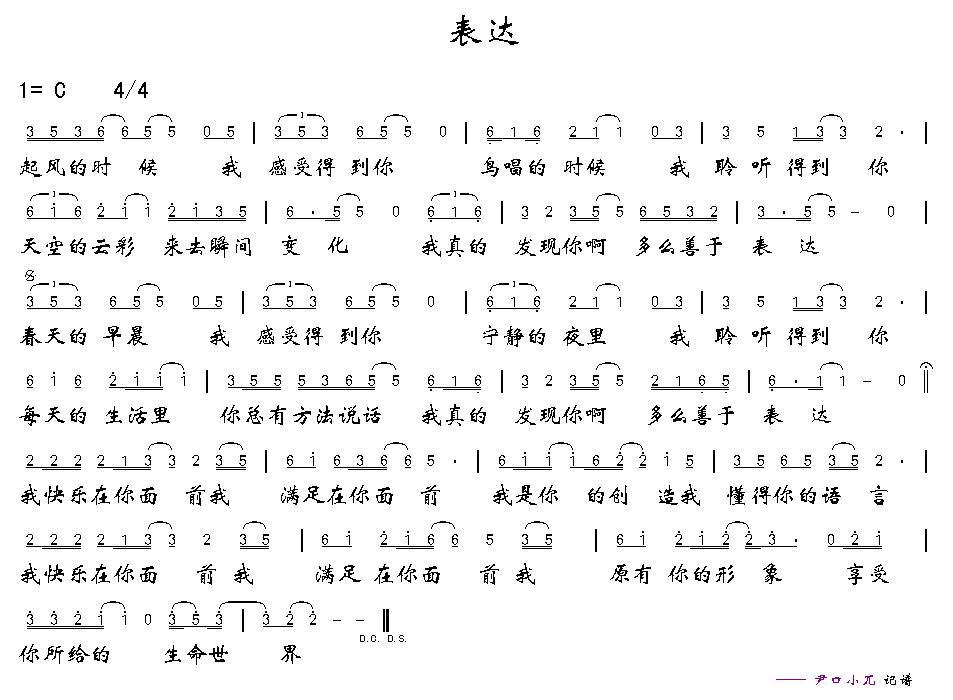 表达
1= C 4/4
3 5 3 6 6 5 5 0 5 | 3 5 3 6 5 5 0 | 6 1 6 2 1 1 0 3 | 3 5 1 3 3 2 · |
起风的时 候 我 感受得 到你 鸟唱的 时候 我 聆 听 得到 你
6 1 6 2 1 1 2 1 3 5 | 6 · 5 5 0 6 1 6 | 3 2 3 5 5 6 5 3 2 | 3 · 5 5 – 0 |
天空的云彩 来去瞬间 变 化 我真的 发现你啊 多么善于 表 达
3 5 3 6 5 5 0 5 | 3 5 3 6 5 5 0 | 6 1 6 2 1 1 0 3 | 3 5 1 3 3 2 · |
春天的 早晨 我 感受得 到你 宁静的 夜里 我 聆 听 得到 你
6 1 6 2 1 1 1 | 3 5 5 5 3 6 5 5 6 1 6 | 3 2 3 5 5 2 1 6 5 | 6 · 1 1 – 0 ‖
每天的 生活里 你总有方法说话 我真的 发现你啊 多么善于 表 达
2 2 2 2 1 3 3 2 3 5 | 6 1 6 3 6 6 5 · | 6 1 1 1 6 2 2 1 5 | 3 5 6 5 3 5 2 · |
我快乐在你面 前我 满足在你面 前 我是你 的创 造我 懂得你的语 言
2 2 2 2 1 3 3 2 3 5 | 6 1 2 1 6 6 5 3 5 | 6 1 2 1 2 2 3 · 0 2 1 |
我快乐在你面 前 我 满足 在你面 前 我 原有 你的形 象 享受
3 3 2 1 1 0 3 5 3 | 3 2 2 – – ‖
D.C. D.S.
你所给的 生命世 界
—— 尹口小兀 记谱